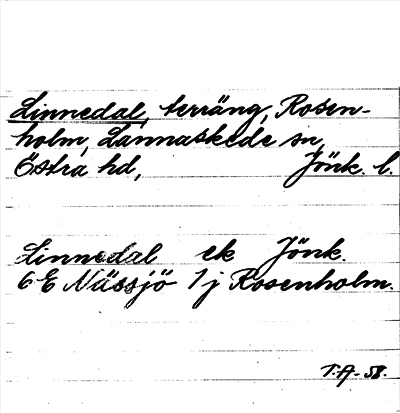 Linnedal, terräng, Rosen-
holm, Lannaskede sn,
Östra hd, Jönk. l.
Linnedal ek Jönk.
6 E Nässjö 1 j Rosenholm.
T.A. 58.